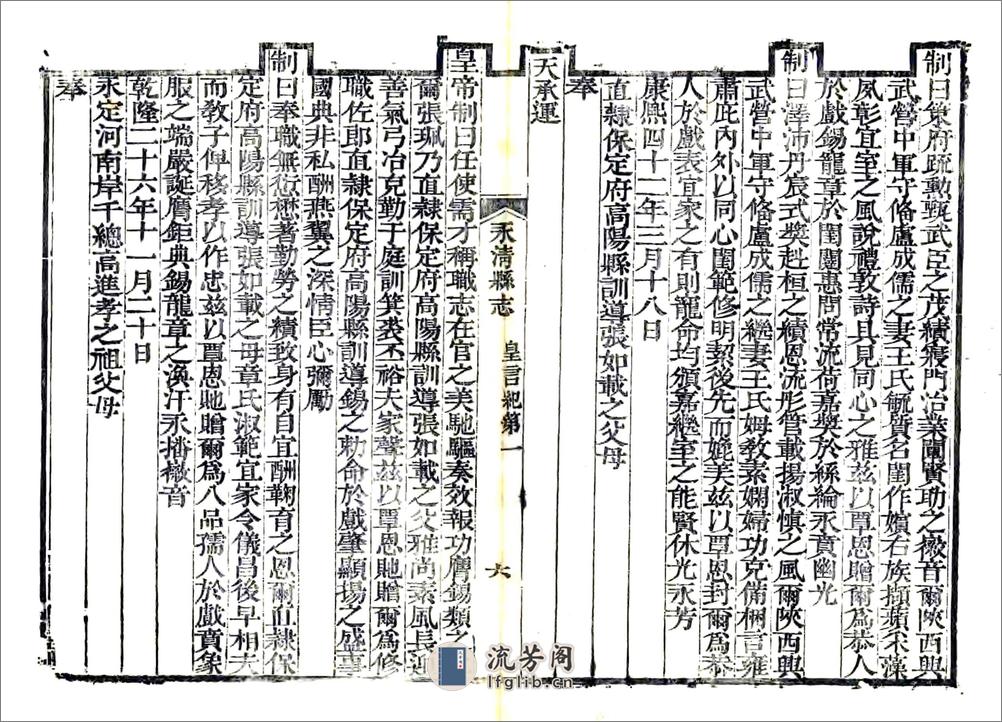 制曰策府疏勲戰武臣之茂績寢門治業闡賢助之徽音爾陝西興
武營中軍守俻盧成儒之妻王氏毓質名閨作嬪右族擷蘋采藻
夙彰宜室之風說禮敦詩具見同心之雅兹以覃恩贈爾爲恭人
於戲錫龍章於閨閫惠問常流荷嘉奬於絲綸永賁幽光
制曰澤沛丹宸式奬赳桓之績恩流彤管載揚淑慎之風爾陝西興
武營中軍守俻盧成儒之繼妻王氏姆教素嫻婦功克備梱言雍
肅庇内外以同心閨範修明絜後先而媲美兹以覃恩封爾爲恭
人於戲表宜家之有則龍命均頒嘉繼室之能賢休光永芳
康熙四十二年三月十八日
直隷保定府高陽縣訓導張如載之父母
奉
天承運
永淸縣志
皇言紀第一
六
皇帝制曰任使需才稱職志在官之美馳驅奏效報功膺錫類之
爾張珮乃直隷保定府高陽縣訓導張如載之父雅尚素風長迎
善氣弓冶克勤于庭訓箕裘丕裕夫家聲兹以覃恩貤贈爾爲修
職佐郎直隷保定府高陽縣訓導錫之勅命於戲肇顯揚之盛事
國典非私酬燕翼之深情臣心彌勵
制曰奉職無愆懋著勤勞之績致身有自宜酬鞠育之恩爾直隷保
定府高陽縣訓導張如載之母章氏淑範宜家令儀昌後早相夫
而教子俾移孝以作忠兹以覃恩貤贈爾爲八品孺人於戲賁象
服之端嚴誕膺鉅典錫龍章之渙汗永播徽音
乾隆二十六年十一月二十日
永定河南岸千總高進孝之祖父母
奉
流芳阁
lfglib.cn